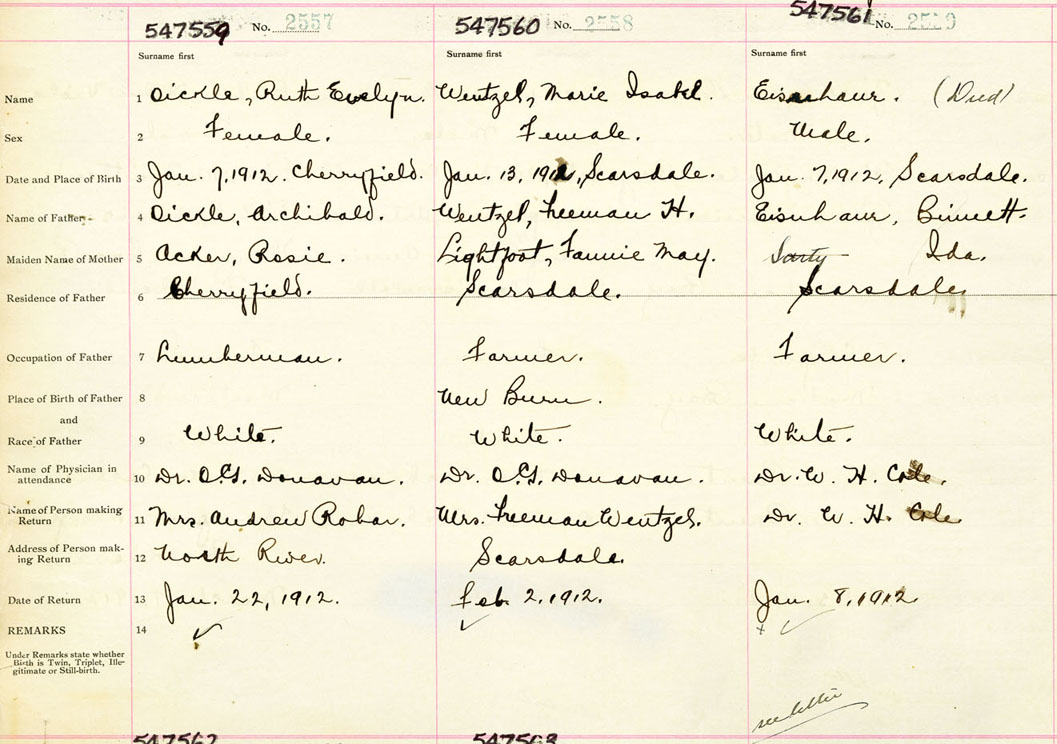 547559 No. 2557 547560 No. 2558 547561 No. 2559
Surname first Surname first Surname first
Name 1 Dickle, Ruth Evelyn. Wentzel, Marie Isabel. Eisenhaur. (Died)
Sex 2 Female. Female. Male.
Date and Place of Birth 3 Jan. 7, 1912. Cherryfield. Jan. 13, 1912, Scarsdale. Jan. 7, 1912, Scarsdale.
Name of Father 4 Dickle, Archibald. Wentzel, Freeman H. Eisenhaur, Binnett.
Maiden Name of Mother 5 Acker, Rosie. Lightfoot, Fannie May. Ida.
Residence of Father 6 Cherryfield. Scarsdale. Scarsdale
Occupation of Father 7 Lumberman. Farmer. Farmer.
Place of Birth of Father 8 New Burn.
and
Race of Father 9 White. White. White.
Name of Physician in
attendance 10 Dr. O.G. Donavan. Dr. O.G. Donavan. Dr. W. H. Cole.
Name of Person making
Return 11 Mrs. Andrew Robar. Mrs. Freeman Wentzel. Dr. W. H. Cole
Address of Person mak-
ing Return 12 North River. Scarsdale.
Date of Return 13 Jan. 22, 1912. Feb. 2, 1912. Jan. 8, 1912
REMARKS 14
Under Remarks state whether
Birth is Twin, Triplet, Ille-
gitimate or Still-birth.
see letter
547562 547563